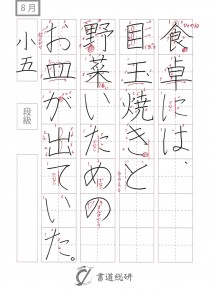 8月
食卓には、
目玉焼きと
野菜いための
お皿が出ていた。
小五
段級
書道総研